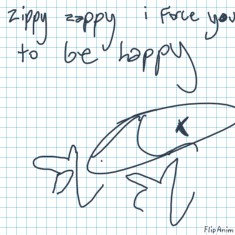 zippy zappy i force you
to be happy
FlipAnim